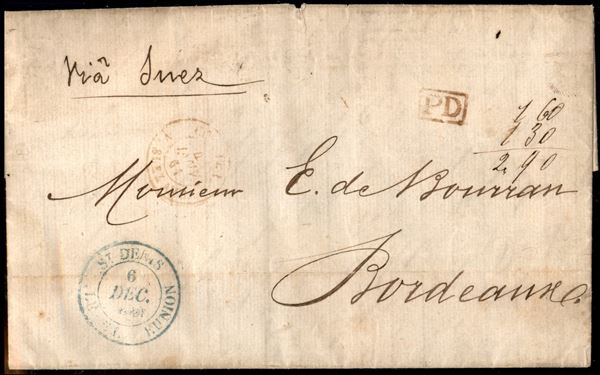 Viâ Suez
PD
1 60
1 30
2. 90
Monsieur E. de Bourran
Bordeaux
ST DENIS
6
DEC.
REUNION